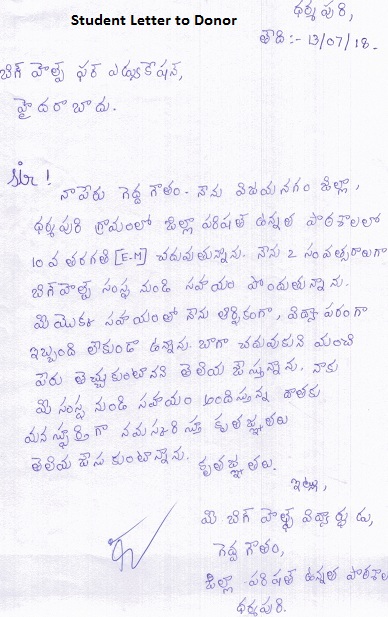 Student Letter to Donor
ధర్మపురి,
తేది :- 13/07/18.
బిగ్ హెల్ప్ ఫర్ ఎడ్యుకేషన్,
హైదరాబాదు.
Sir !
నాపేరు గెద్ద గౌతం. నేను విజయనగరం జిల్లా,
ధర్మపురి గ్రామంలో జిల్లా పరిషత్ ఉన్నత పాఠశాలలో
10 వ తరగతి [E.M] చదువుతున్నాను. నేను 2 సంవత్సరాలుగా
బిగ్ హెల్ప్ సంస్థ నుండి సహాయం పొందుతున్నాను.
మీ యొక్క సహాయంతో నేను ఆర్థికంగా, విద్యా పరంగా
ఇబ్బంది లేకుండా ఉన్నాను. బాగా చదువుకుని మంచి
పేరు తెచ్చుకుంటానని తెలియ చేస్తున్నాను. నాకు
మీ సంస్థ నుండి సహాయం అందిస్తున్న దాతకు
మనస్ఫూర్తిగా నమస్కరిస్తూ కృతజ్ఞతలు
తెలియ చేసుకుంటున్నాను. కృతజ్ఞతలు.
ఇట్లు,
మీ బిగ్ హెల్ప్ విద్యార్థుడు,
గెద్ద గౌతం,
జిల్లా పరిషత్ ఉన్నత పాఠశాల
ధర్మపురి.